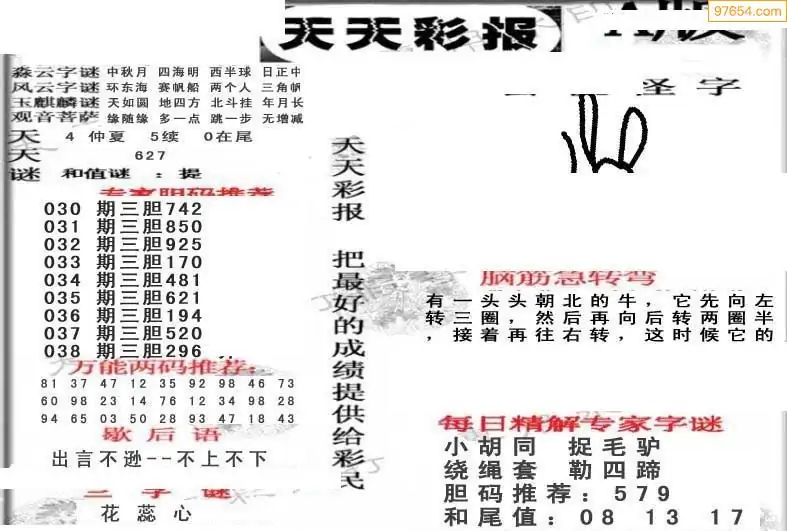 97654.com
天天彩报
A版
圣字
森云字谜 中秋月 四海明 西半球 日正中
风云字谜 环东海 赛帆船 两个人 三角帆
玉麒麟谜 天如圆 地四方 北斗挂 年月长
观音菩萨 缘随缘 多一点 跳一步 无增减
天 4 仲夏 5续 0在尾
天 627
谜 和值谜 : 提
专家胆码推荐
030 期三胆742
031 期三胆850
032 期三胆925
033 期三胆170
034 期三胆481
035 期三胆621
036 期三胆194
037 期三胆520
038 期三胆296
万能两码推荐:
81 37 47 12 35 92 98 46 73
60 98 23 14 76 12 34 98 28
94 65 03 50 28 93 47 18 43
歇后语
出言不逊--不上不下
三字谜
花蕊心
天天彩报 把最好的成绩提供给彩民
脑筋急转弯
有一头头朝北的牛，它先向左
转三圈，然后再向后转两圈半
，接着再往右转，这时候它的
每日精解专家字谜
小胡同 捉毛驴
绕绳套 勒四蹄
胆码推荐：579
和尾值：08 13 17